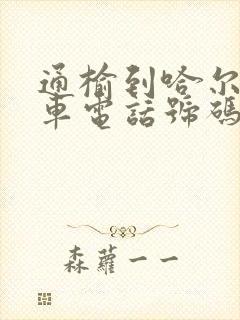 通榆到哈尔
車電話號碼
森蘿一一